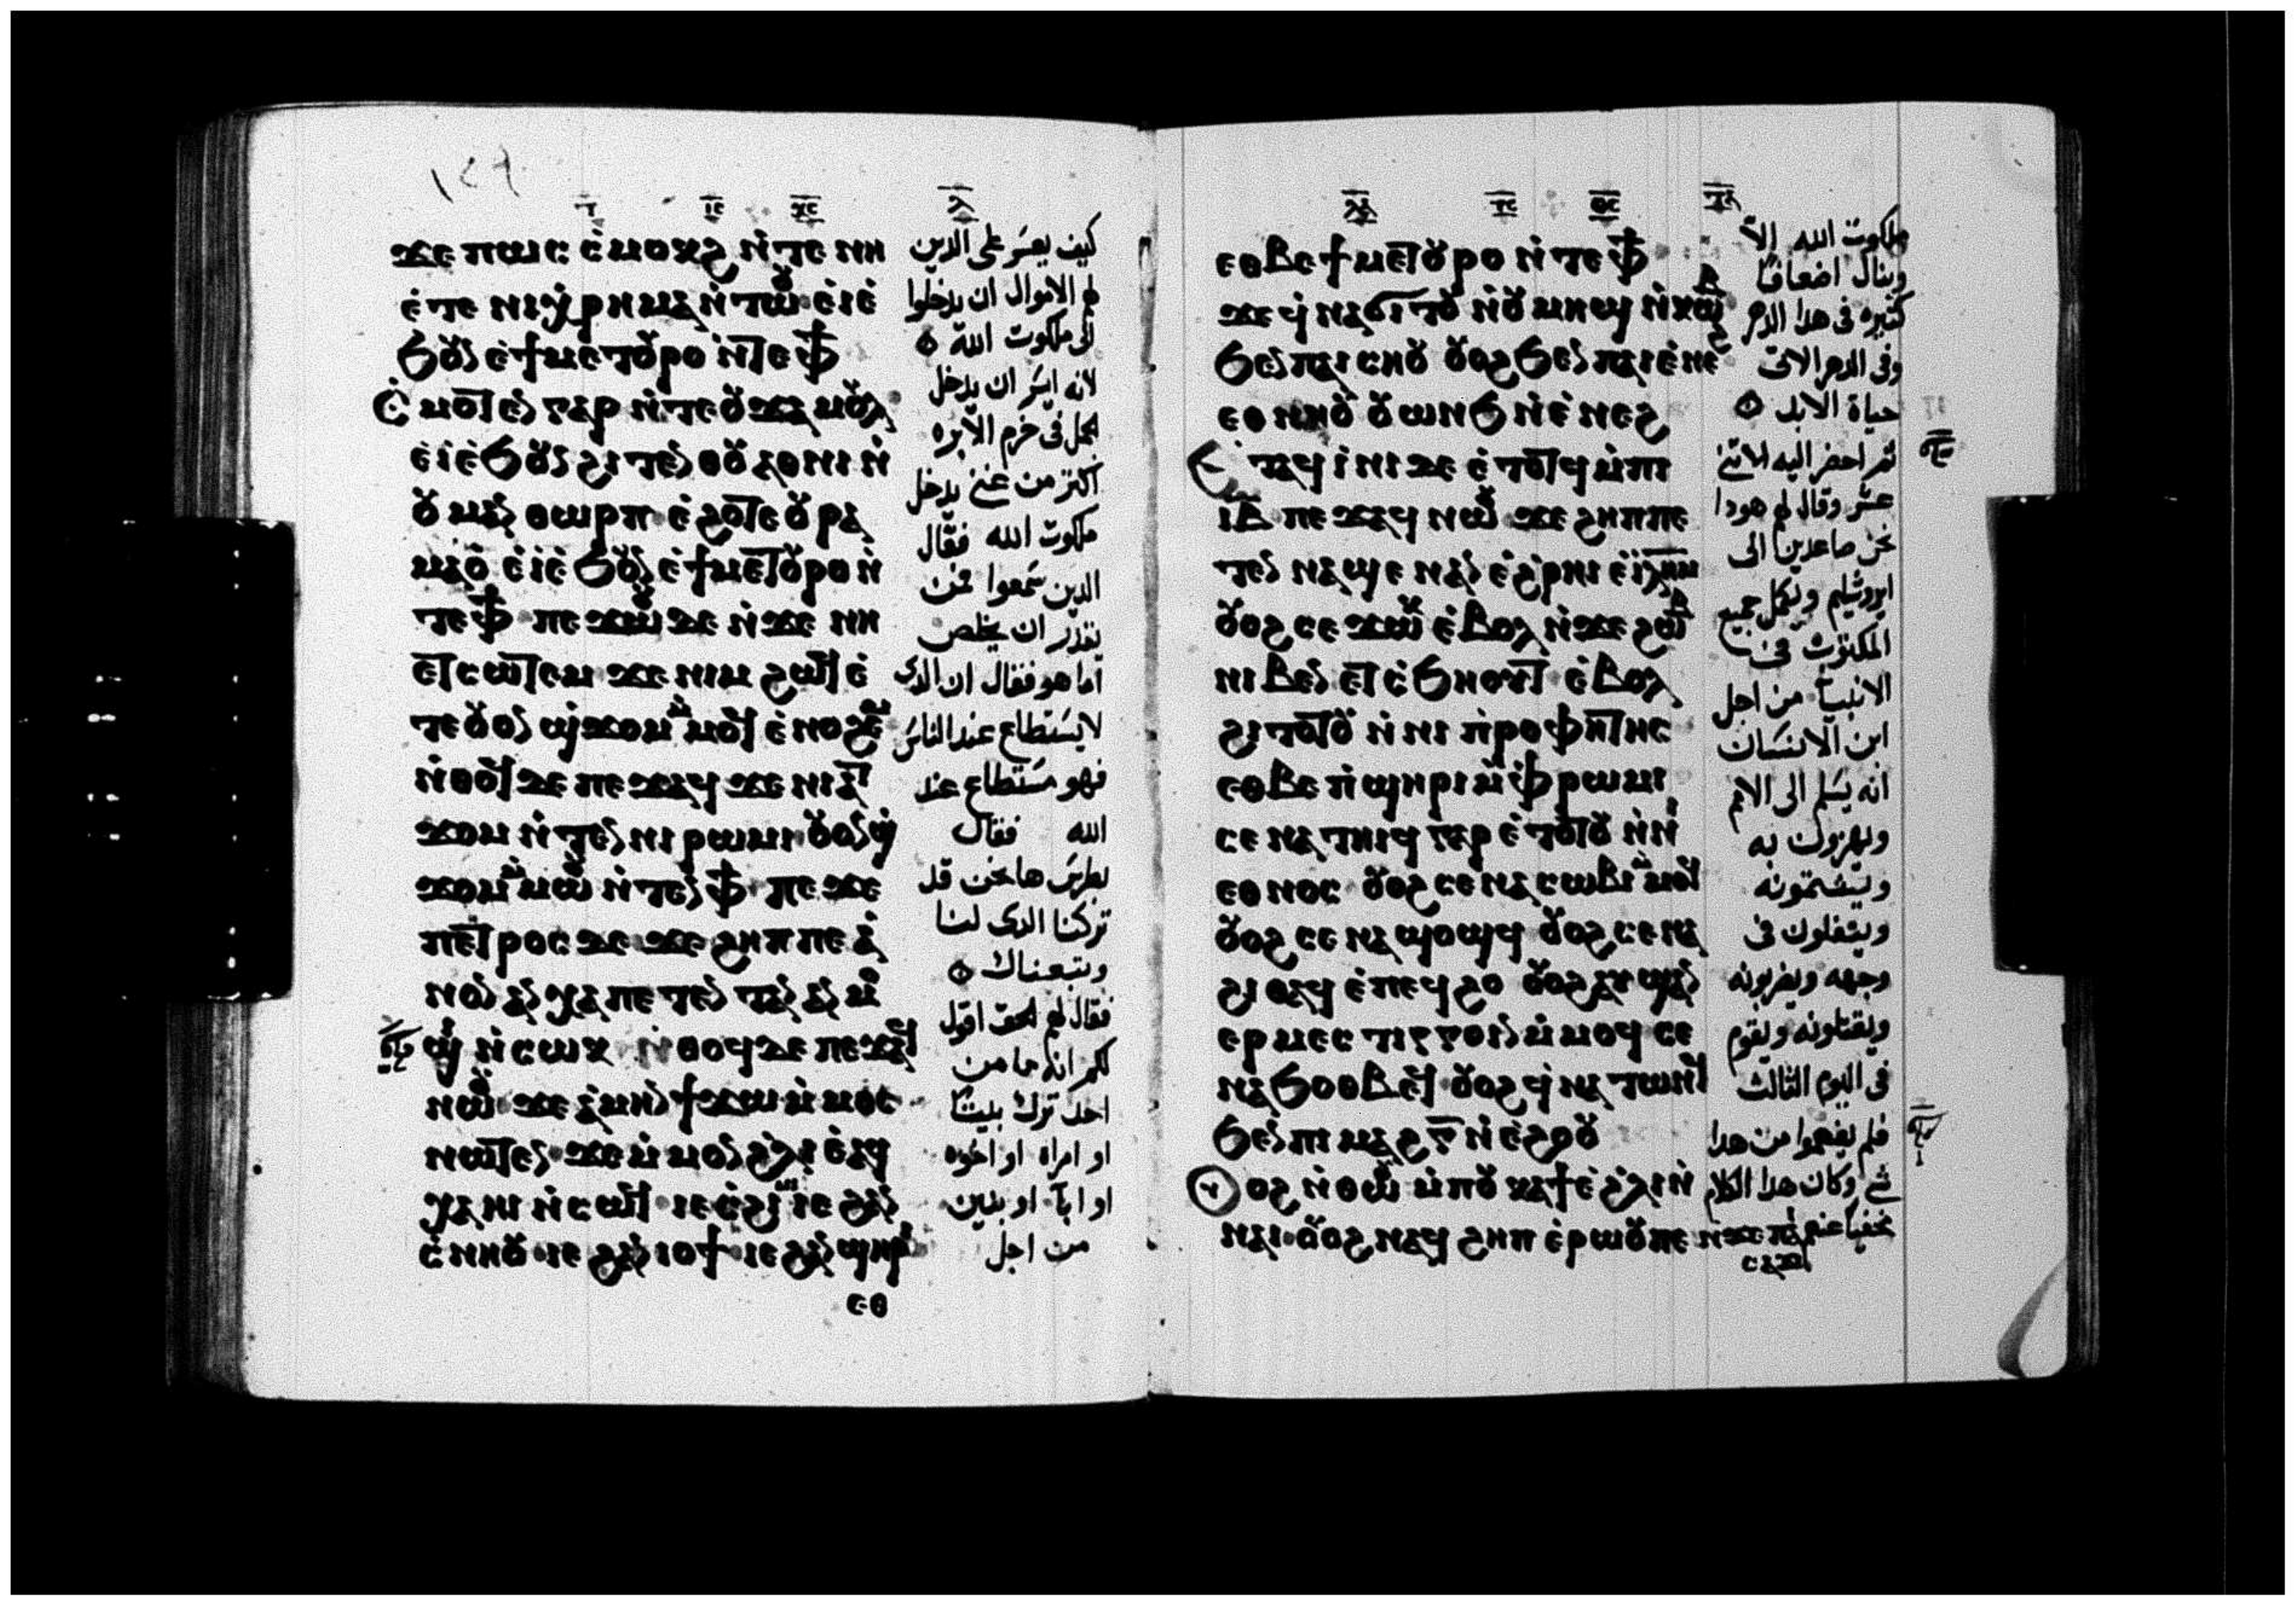 ϫⲉ ⲡⲱⲥ ⲥ̀ⲙⲟⲕϩ ⲛ̀ⲧⲉ ⲛⲏ
ⲉ̀ⲧⲉ ⲛⲓⲭ̀ⲣⲏⲙⲁ ⲛ̀ⲧⲱⲟⲩ ⲉ̀ⲓⲉ̀
ϧⲟⲩⲛ ⲉ̀ϯⲙⲉⲧⲟⲩⲣⲟ ⲛ̀ⲧⲉⲫϯ
ⲥ̀ⲙⲟⲧⲉⲛ ⲅⲁⲣ ⲛ̀ⲧⲉ ⲟⲩϫⲁⲙⲟⲩⲗ
ⲉ̀ⲓⲉ̀ϧⲟⲩⲛ ϩⲓⲧⲉⲛ ⲑⲟⲩⲁⲑⲛⲓ ⲛ̀
ⲟⲩⲙⲁⲛ̀ⲑⲱⲣⲡ ⲉ̀ϩⲟⲧⲉ ⲟⲩⲣⲁ
ⲙⲁⲟ̀ ⲉ̀ⲓⲉ̀ϧⲟⲩⲛ ⲉ̀ϯⲙⲉⲧⲟⲩⲣⲟ ⲛ̀
ⲧⲉⲫϯ ⲡⲉϫⲱⲟⲩ ⲇⲉ ⲛ̀ϫⲉ ⲛⲏ
ⲉⲧⲥⲱⲧⲉⲙ ϫⲉ ⲛⲓⲙ ϩⲱϥ ⲉ̀
ⲧⲉ ⲟⲩⲟⲛ ϣ̀ϫⲟⲙ ⲙ̀ⲙⲟϥ ⲉ̀ⲛⲟϩⲉⲙ
ⲛ̀ⲑⲟϥ ⲇⲉ ⲡⲉϫⲁϥ ϫⲉ ⲛⲓⲁⲧ
ϫⲟⲙ ⲛ̀ⲧⲉⲛ ⲛⲓⲣⲱⲙⲓ ⲟⲩⲟⲛ ϣ̀
ϫⲟⲙ ⲙ̀ⲙⲱⲟⲩ ⲛ̀ⲧⲉⲛ ⲫϯ ⲡⲉϫⲉ
ⲡⲉⲧⲣⲟⲥ ⲇⲉ ϫⲉ ϩⲏⲡⲡⲉ ⲁ̀
ⲛⲟⲛ ⲁⲛⲭⲁ ⲡⲉⲧⲉⲛⲧⲁⲛ ⲁⲛⲙⲟ
ϣⲓ ⲛ̀ⲥⲱⲕ ⲛ̀ⲑⲟϥ ⲇⲉ ⲡⲉϫⲁϥ
ⲛⲱⲟⲩ ϫⲉ ⲁ̀ⲙⲏⲛ ϯϫⲱ ⲙ̀ⲙⲟⲥ
ⲛⲱⲧⲉⲛ ϫⲉ ⲙ̀ⲙⲟⲛ ϩ̀ⲗⲓ ⲉ̀ⲁϥ
ⲭⲁ ⲏⲓ ⲛ̀ⲥⲱϥ ⲓⲉ ⲥ̀ϩⲓⲙⲓ ⲓⲉ ϩⲁⲛ
ⲥ̀ⲛⲏⲟⲩ ⲓⲉ ϩⲁⲛⲓⲟϯ ⲓⲉ ϩⲁⲛϣⲏⲣⲓ
ⲉⲑ
كيف يعسر على الدين
لهم الاموال ان يدخلوا
الى ملكوت الله
لانه ايسر ان يدخل
الجمل فى خرم الابره
اكثر من غنى يدخل
ملكوت الله فقال
الدين سمعوا فمن
يقدر ان يخلص
اما هو فقال ان الدى
لا يستطاع عند الناس
فهو مستطاع عند
الله فقال
بطرس ها نحن قد
تركنا الدى لنا
وتبعناك
فقال لهم الحق اقول
لكم انه ما من
احد ترك بيتا
او امراه او اخوه
او ابا او بنين
من اجل
ⲉⲑⲃⲉ ϯⲙⲉⲧⲟⲩⲣⲟ ⲛ̀ⲧⲉ ⲫϯ
ϫⲉ ϥ̀ⲛⲁϭⲓⲧⲟⲩ ⲛ̀ⲟⲩⲙⲏϣ ⲛ̀ⲕⲱⲃ
ϧⲉⲛ ⲡⲁⲓⲥⲏⲟⲩ ⲟⲩⲟϩ ϧⲉⲛ ⲡⲁⲓⲉ̀ⲛⲉϩ
ⲉⲑⲛⲏⲟⲩ ⲟⲩⲱⲛϧ ⲛ̀ⲉ̀ⲛⲉϩ
ⲁϥⲓ̀ⲛⲓ ⲇⲉ ⲉ̀ⲧⲟⲧϥ ⲙ̀ⲡⲓ
ⲓⲃ ⲡⲉϫⲁϥ ⲛⲱⲟⲩ ϫⲉ ϩⲏⲡⲡⲉ
ⲧⲉⲛⲛⲁϣⲉ ⲛⲁⲛ ⲉ̀ϩ̀ⲣⲏⲓ ⲉ̀ⲓⲗⲏⲙ
ⲟⲩⲟϩ ⲥⲉϫⲱⲕ ⲉ̀ⲃⲟⲗ ⲛ̀ϫⲉ ϩⲱⲃ
ⲛⲓⲃⲉⲛ ⲉⲧⲥ̀ϧⲏⲟⲩⲧ ⲉ̀ⲃⲟⲗ
ϩⲓⲧⲟⲧⲟⲩ ⲛ̀ⲛⲓⲡ̀ⲣⲟⲫⲏⲧⲏⲥ
ⲉⲑⲃⲉ ⲡ̀ϣⲏⲣⲓ ⲙ̀ⲫ̀ⲣⲱⲙⲓ
ⲥⲉⲛⲁⲧⲏⲓϥ ⲅⲁⲣ ⲉ̀ⲧⲟⲧⲟⲩ ⲛ̀ⲛⲓ
ⲉⲑⲛⲟⲥ ⲟⲩⲟϩ ⲥⲉⲛⲁⲥⲱⲃⲓ ⲙ̀ⲙⲟϥ
ⲟⲩⲟϩ ⲥⲉⲛⲁϣⲟϣϥ ⲟⲩⲟϩ ⲥⲉⲛⲁ
ϩⲓⲑⲁϥ ⲉ̀ⲡⲉϥϩⲟ ⲟⲩⲟϩ ⲁⲩϣⲁⲛ
ⲉⲣⲙⲉⲥⲧⲓⲅⲅⲟⲓⲛ ⲙ̀ⲙⲟϥ ⲥⲉ
ⲛⲁϧⲟⲑⲃⲉϥ ⲟⲩⲟϩ ϥ̀ⲛⲁⲧⲱⲛϥ
ϧⲉⲛ ⲡⲓⲙⲁϩ ⲅ ⲛ̀ⲉ̀ϩⲟⲟⲩ
ⲟⲩⲟϩ ⲛ̀ⲑⲱⲟⲩ ⲙ̀ⲡⲟⲩⲕⲁϯ ⲉ̀ϩ̀ⲗⲓ ⲛ̀
ⲛⲁⲓ ⲟⲩⲟϩ ⲛⲁϥϩⲏⲡ ⲉ̀ⲣⲱⲟⲩ ⲡⲉ ⲛ̀ϫⲉ ⲡⲁⲓ
ⲥⲁϫⲓ
ملكوت الله الا
وينال اضعافا
كثيره فى هدا الدهر
وفى الدهر الاتى
حياة الابد
ثم احضر اليه الاثنى
عشر وقال لهم هودا
نحن صاعدين الى
ايروشليم ويكمل جميع
المكتوب فى
الانبيا من اجل
ابن الانسان
انه يسلم الى الامم
ويهزون به
ويشتمونه
ويتفلون فى
وجهه ويضربونه
ويقتلونه ويقوم
فى اليوم الثالث
فلم يفهموا من هدا
شى وكان هدا الكلام
مخفيا عنهم